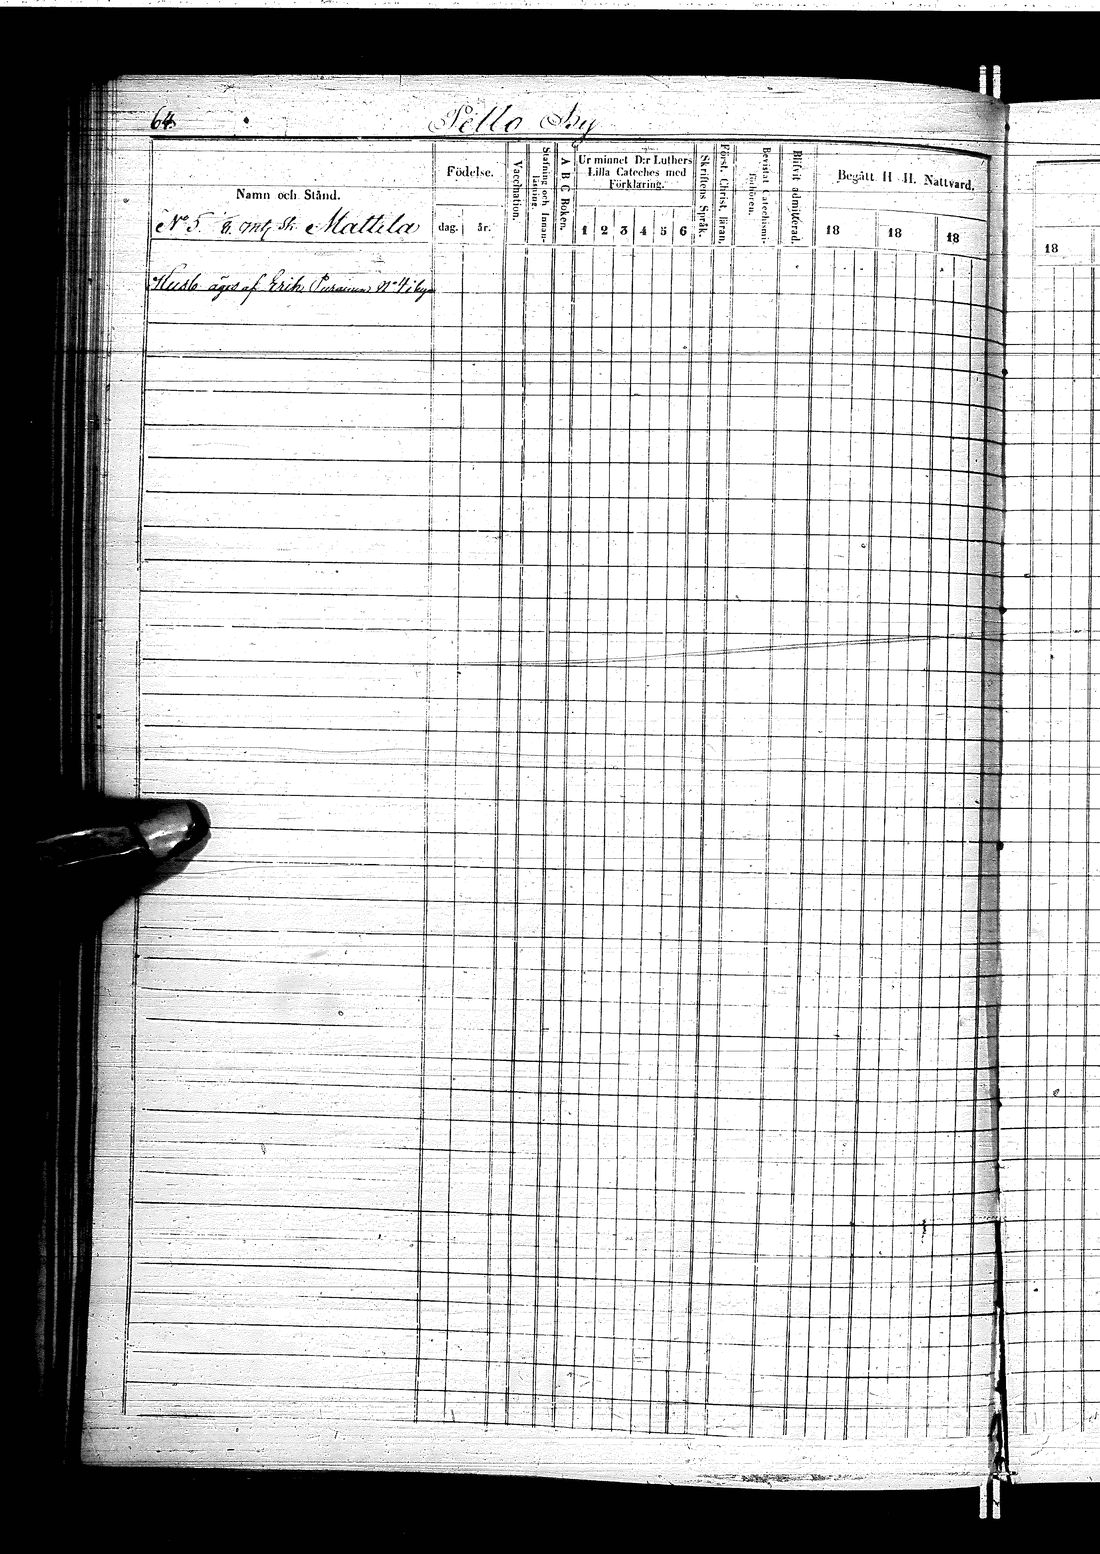 64.
Pello by
Namn och Stånd.
Födelse.
dag.
år.
Vaccination.
Stafning och Innan-
läsning.
A B C Boken.
Ur minnet D:r Luthers
Lilla Cateches med
Förklaring.
1 2 3 4 5 6
Skriftens Språk.
Först. Christ. läran.
Bevistat Catechismi-
förhören.
Blifvit admitterad.
Begått H. H. Nattvard.
18 18 18
18
No 5. Mattila
Husb. äges af Erik Puranen No 4 i byn